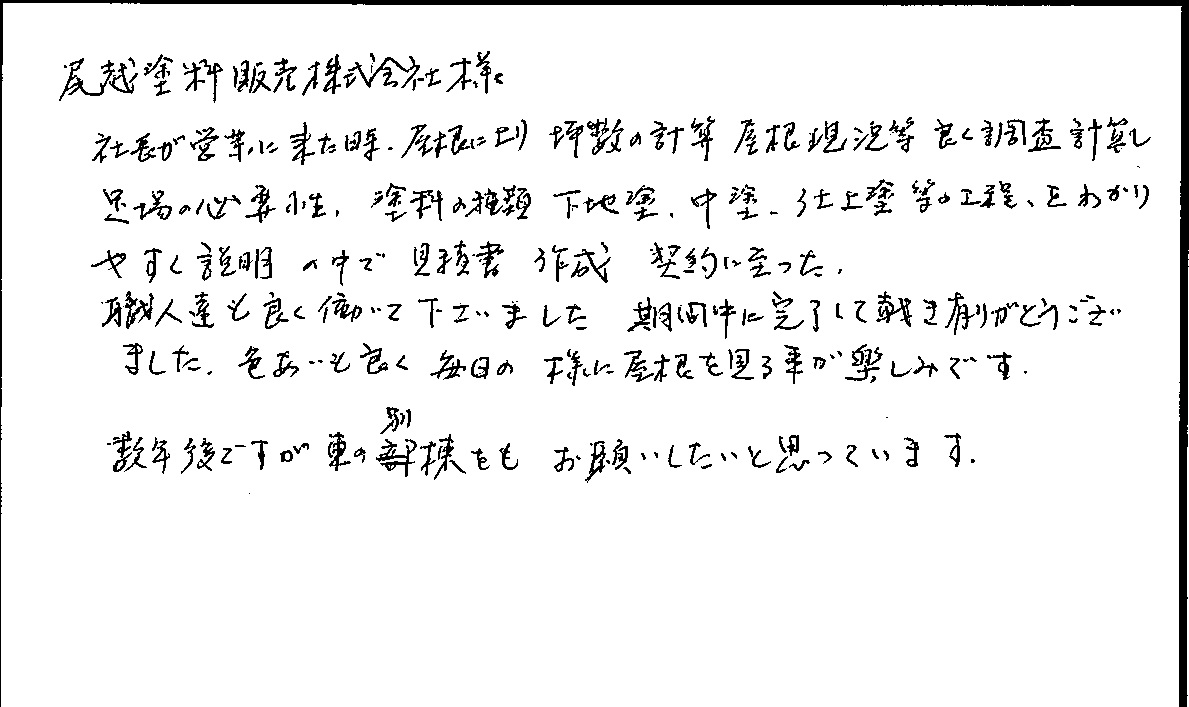 尾越塗料販売株式会社様
社長が営業に来た時、屋根に上り 坪数の計算 屋根現況等 良く調査計算し
足場の必要性、塗料の種類 下地塗、中塗、仕上塗等の工程、をわかり
やすく説明 の中で 見積書 作成 契約に至った。
職人達も良く働いて下さいました 期間中に完了して戴き有りがとうござい
ました。色あいも良く 毎日の 様に屋根を見る事が楽しみです。
数年後ですが東の別棟をも お願いしたいと思っています。